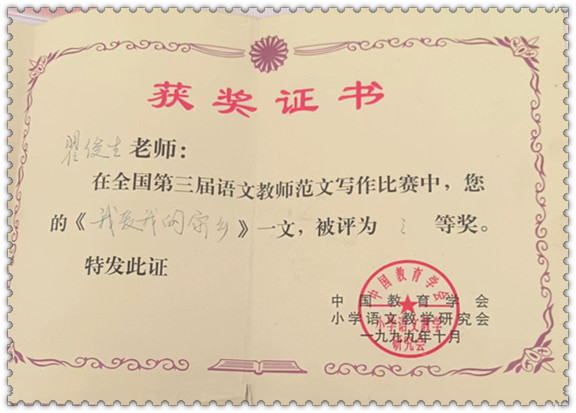 获奖证书
翟俊生老师：
在全国第三届语文教师范文写作比赛中，您
的《我爱我的家乡》一文，被评为 三 等奖。
特发此证
中国教育学会
小学语文教学研究会
一九九九年十月
中国教育学会
小学语文教学
研究会